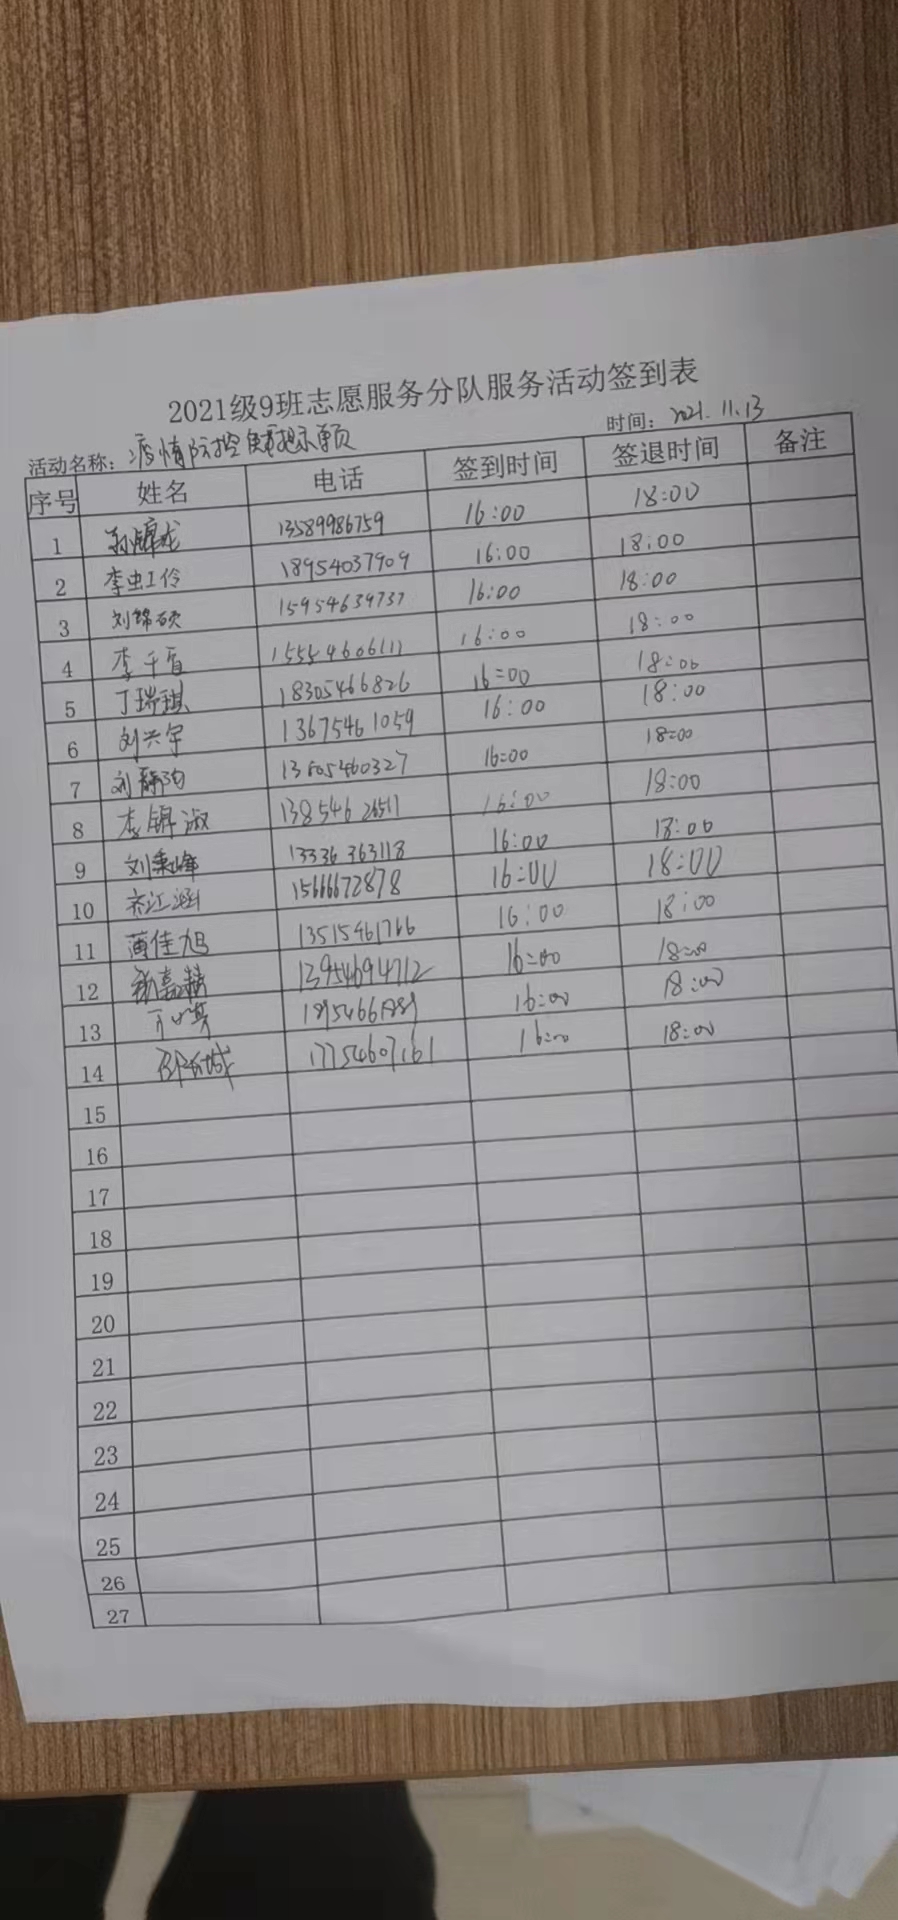 2021级9班志愿服务分队服务活动签到表
活动名称：疫情防控 时间：2021.11.13
序号 姓名 电话 签到时间 签退时间 备注
1 孙锦龙 13589986759 16:00 18:00
2 李虹伶 18954037909 16:00 18:00
3 刘锦硕 15954639737 16:00 18:00
4 李千百 15554606111 16:00 18:00
5 丁瑞琪 18305466826 16:00 18:00
6 刘兴宇 13675461059 16:00 18:00
7 刘 13605460327 16:00 18:00
8 李锦淑 13854626511 16:00 18:00
9 刘秉峰 13336363118 16:00 18:00
10 齐江涵 15666672878 16:00 18:00
11 薄佳旭 13515461766 16:00 18:00
12 张嘉 13954694712 16:00 18:00
13 16:00 18:00
14 17754607161 16:00 18:00
15
16
17
18
19
20
21
22
23
24
25
26
27